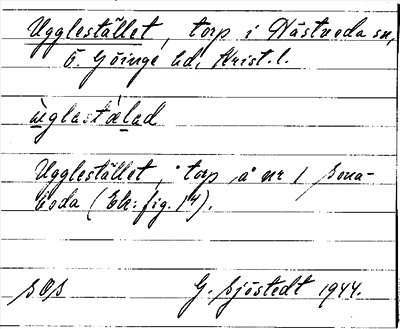 Ugglestället, torp i Nästveda sn,
Ö. Göinge hd, Krist. l.
ùglestælad
Ugglestället, torp å nr 1 Sona-
boda (Ek: fig. 1).
SOS G. Sjöstedt 1944.